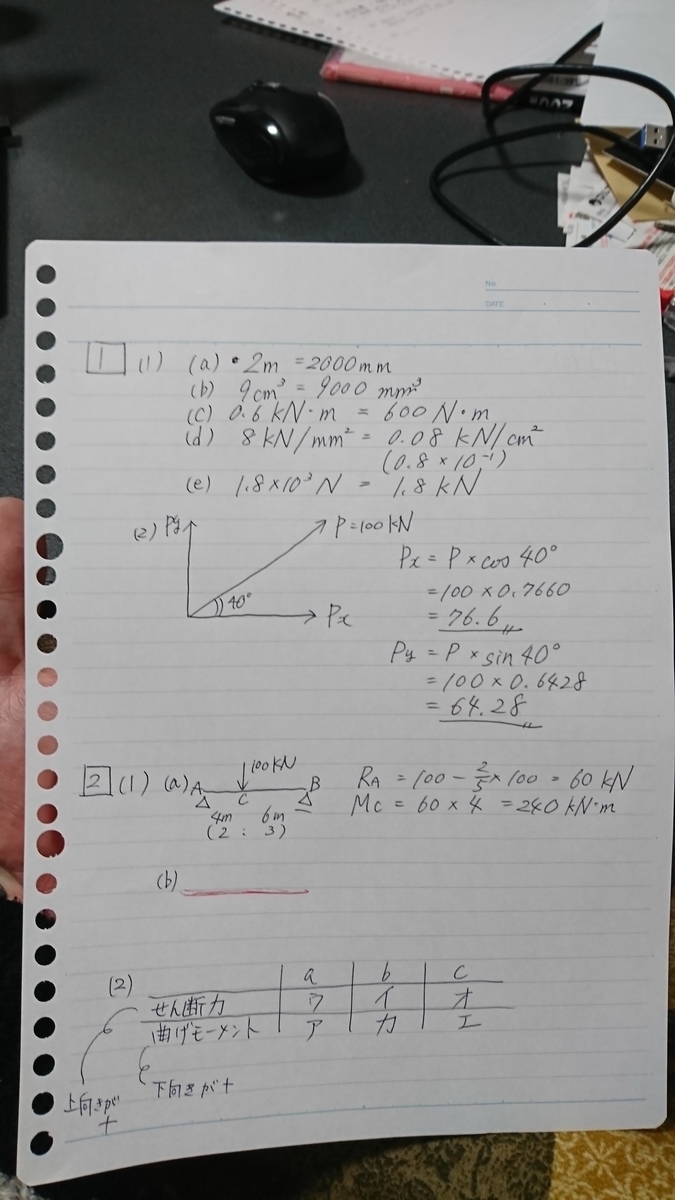 No.
DATE
1 (1) (a) • 2m = 2000mm
(b) 9cm³ = 9000 mm³
(c) 0.6 kN・m = 600 N・m
(d) 8 kN/mm² = 0.08 kN/cm²
(0.8 × 10⁻¹)
(e) 1.8×10³N = 1.8 kN
(2) Py P=100kN
40° Px
Px = P × cos 40°
= 100 × 0.7660
= 76.6〃
Py = P × sin 40°
= 100 × 0.6428
= 64.28〃
2 (1) (a) A 100kN B RA = 100 − 2/5 × 100 = 60 kN
C Mc = 60 × 4 = 240 kN・m
4m 6m
(2 : 3)
(b)
(2) a b c
せん断力 ウ イ オ
曲げモーメント ア カ エ
下向きが+
上向きが
+